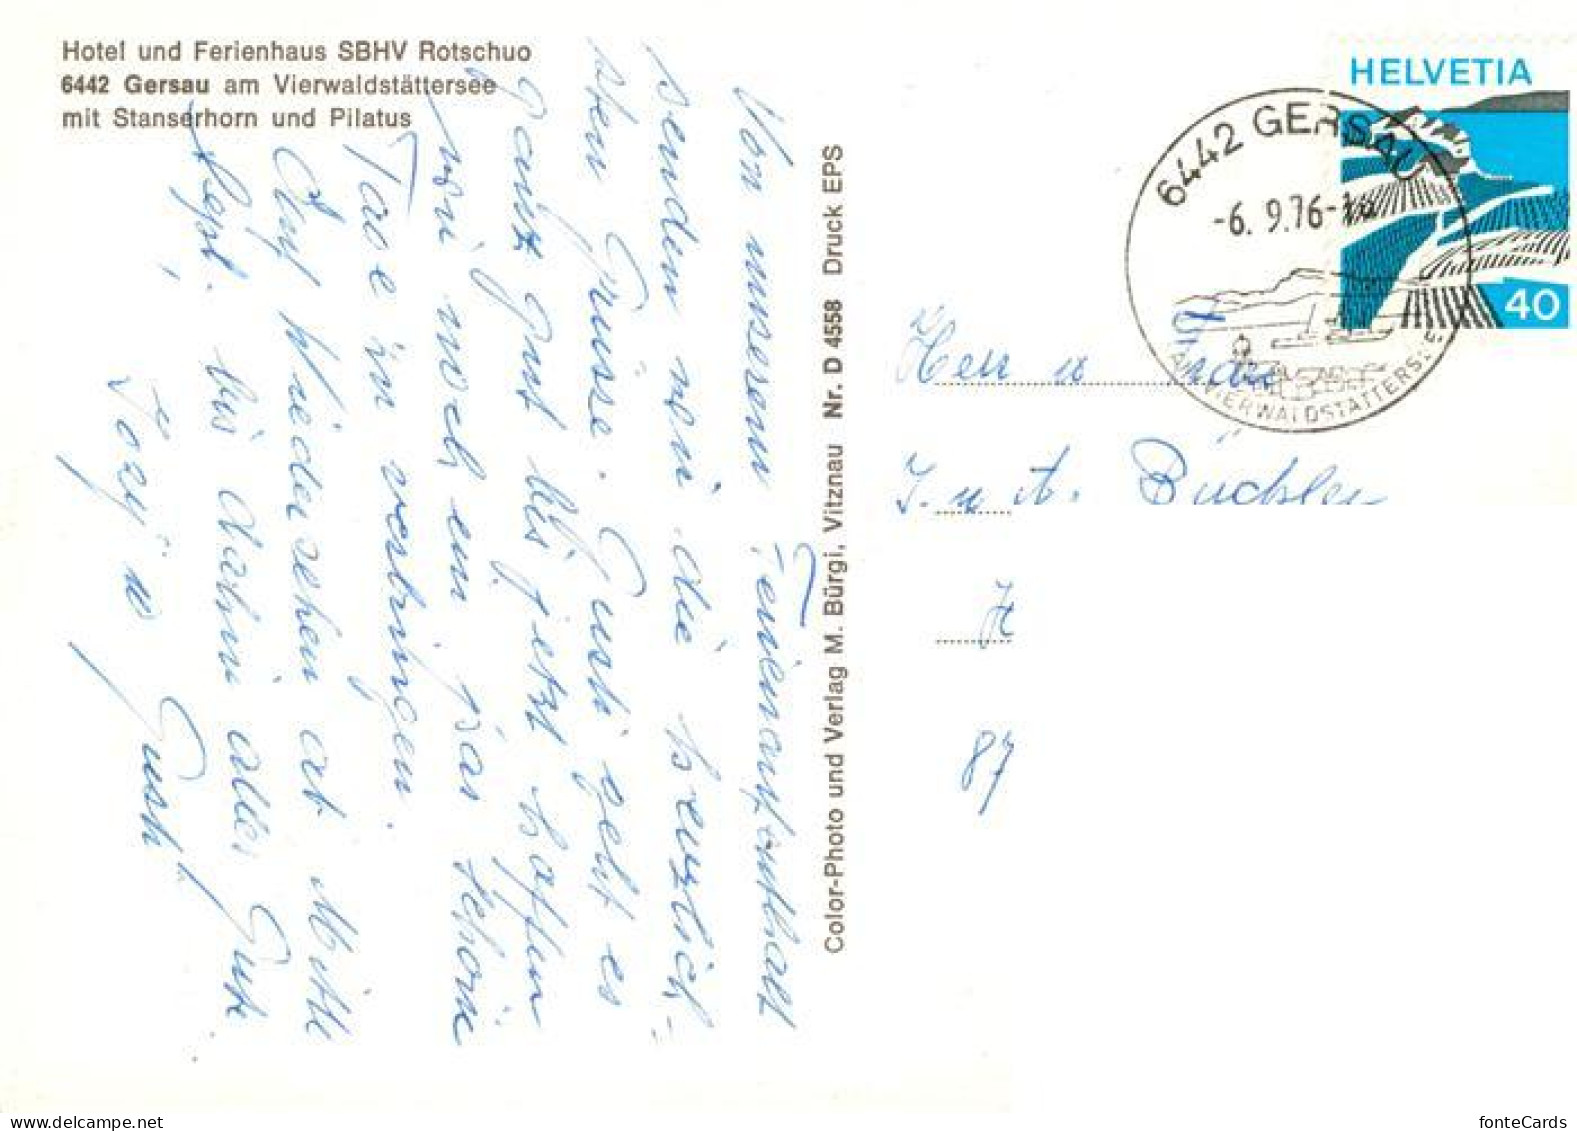 Hotel und Ferienhaus SBHV Rotschuo
6442 Gersau am Vierwaldstättersee
mit Stanserhorn und Pilatus
Von unserem Ferienaufenthalt
senden wir die herzlich-
sten Grüsse. Gusti geht es
ganz gut bis jetzt hoffen
wir noch ein paar schöne
Tage in verbringen.
Auf Wiedersehen at Mitte
Sept. bis dahin alles Gute
u Gusti
Color-Photo und Verlag M. Bürgi, Vitznau Nr. D 4558 Druck EPS
HELVETIA
40
6442 GERSAU
-6. 9.76-
AM VIERWALDSTÄTTERSEE
Herr u
J. u A. Büchsler
87
fonteCards